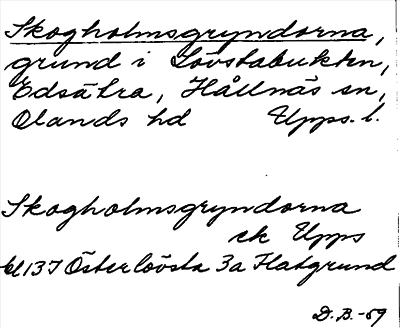 Skogholmsgryndorna,
grund i Lövstabukten,
Edsätra, Hållnäs sn,
Olands hd Upps. l.
Skogholmsgryndorna
ek Upps
bl 13I Österlövsta 3a Flatgrund
D.B.-59